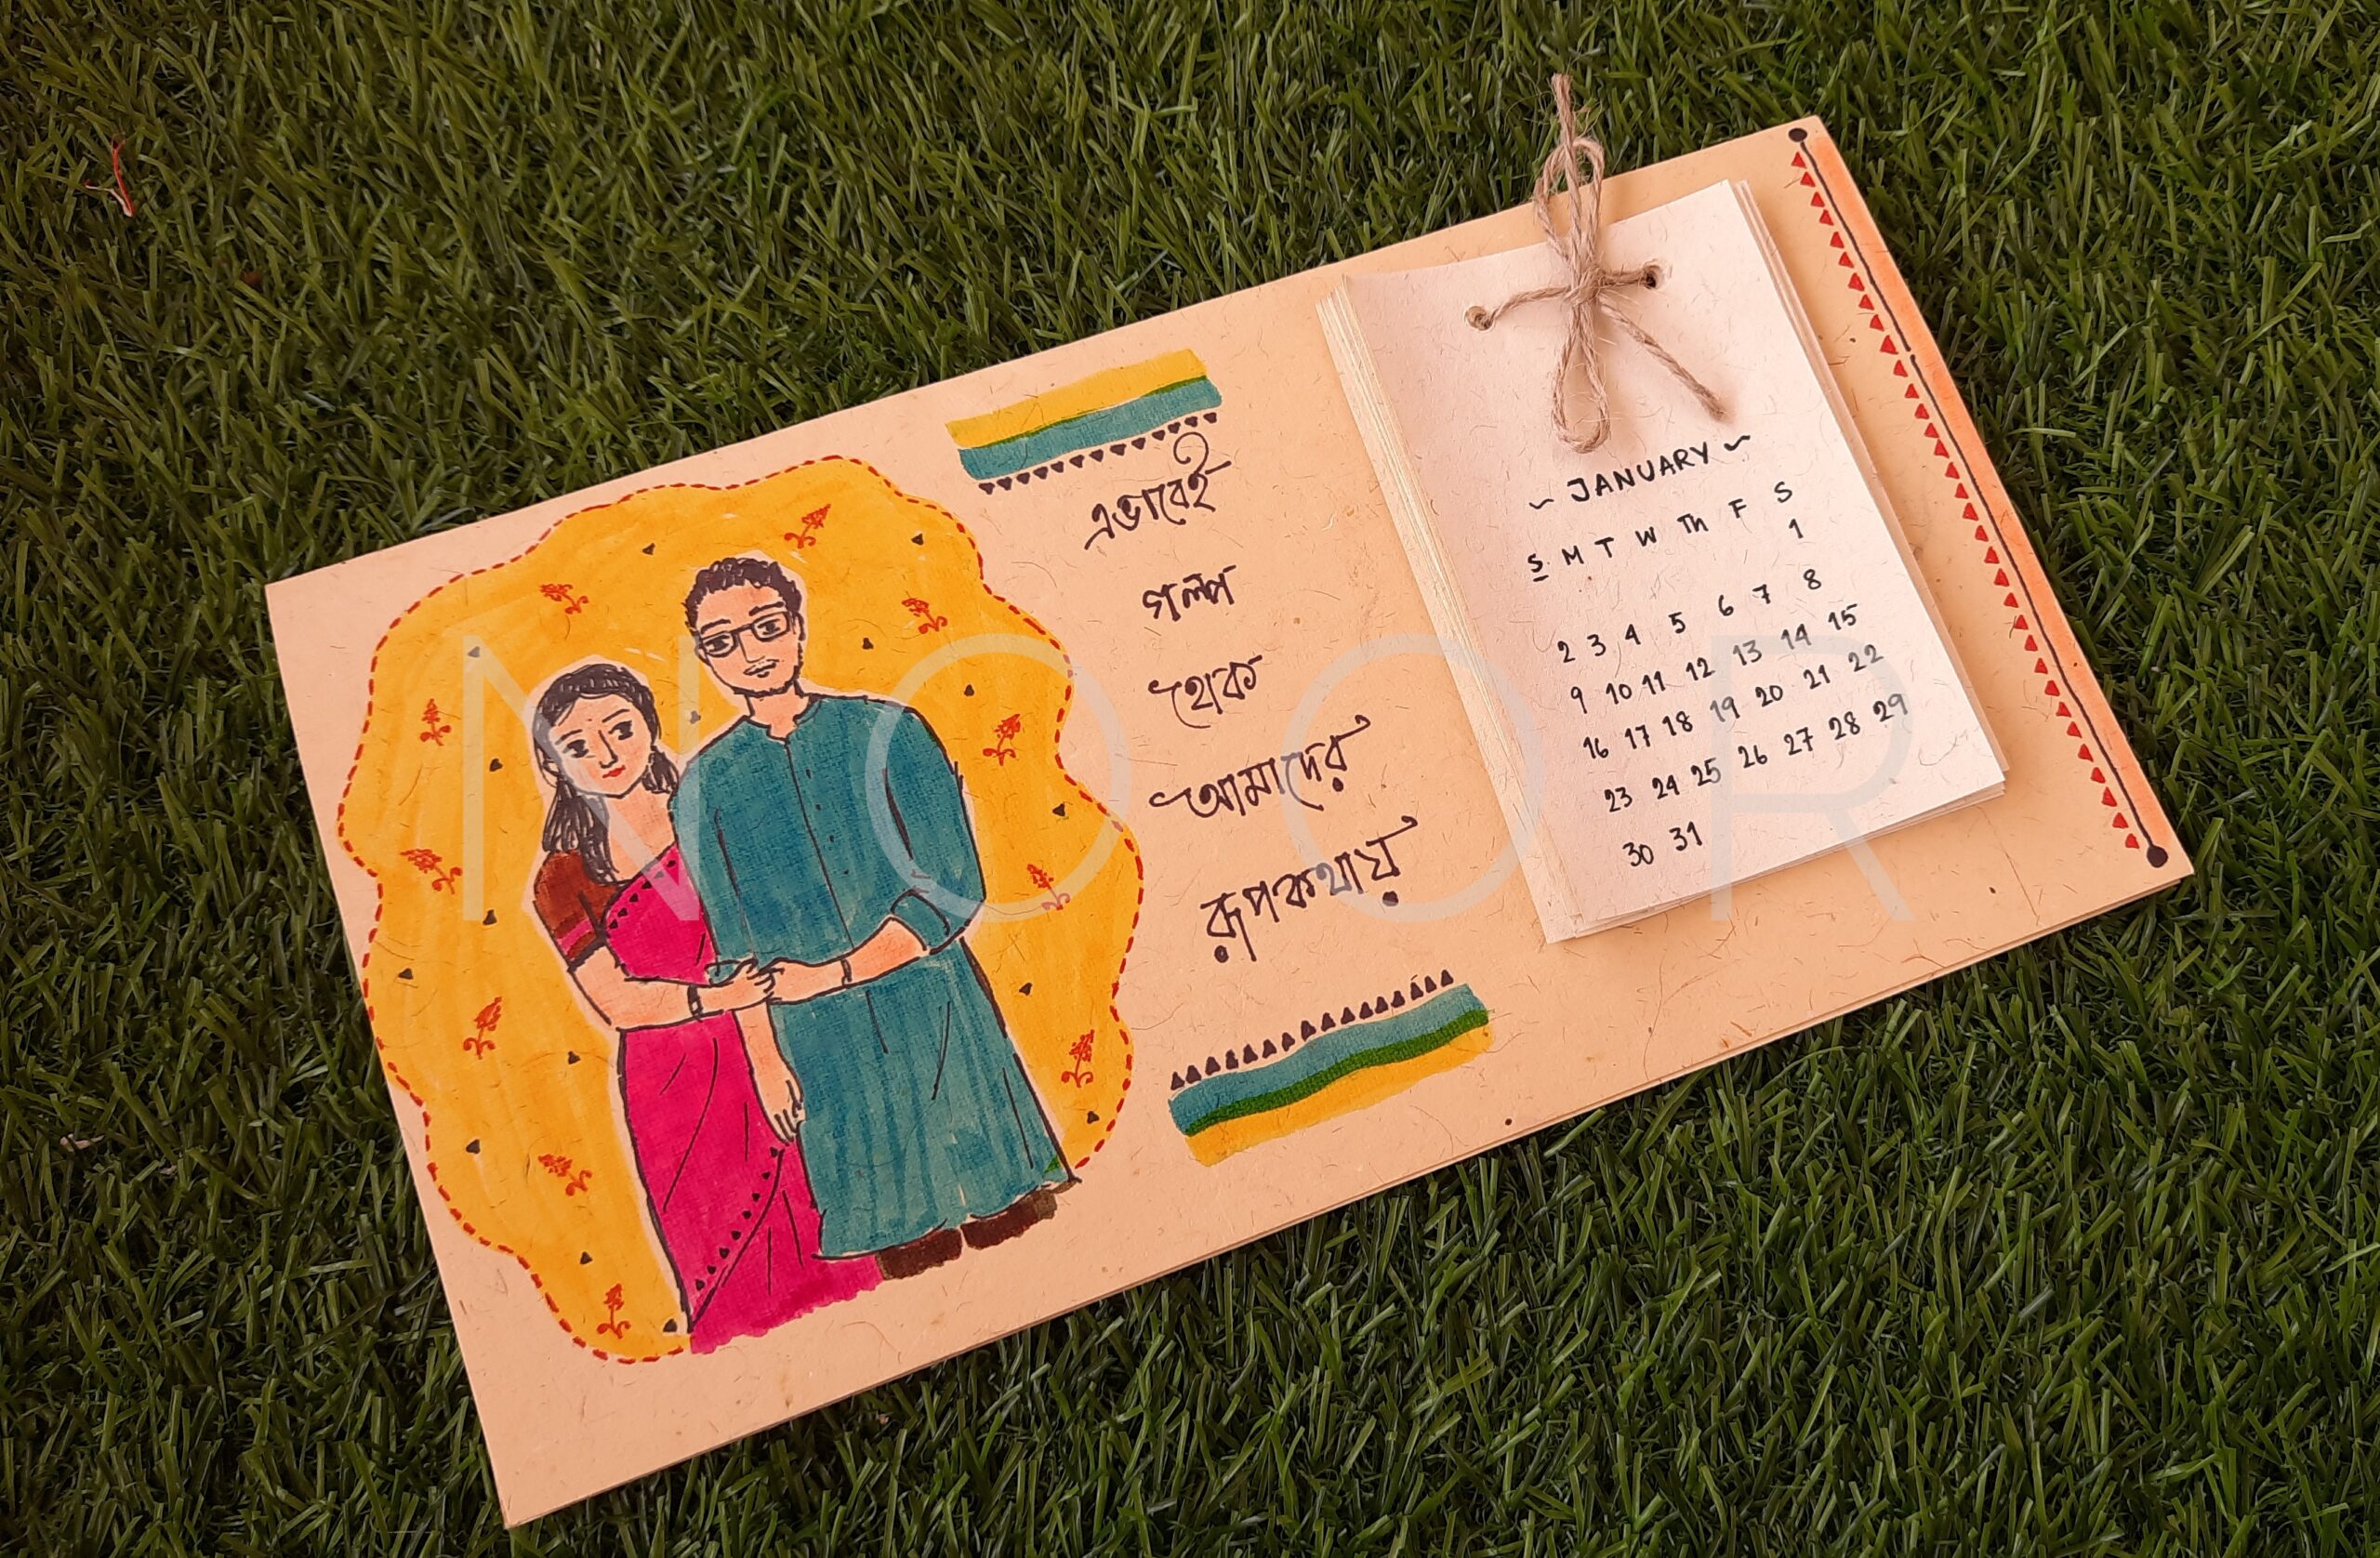 এভাবেই
গল্প
থেক
আমাদের
রূপকথায়
~ JANUARY ~
S M T W Th F S
1
2 3 4 5 6 7 8
9 10 11 12 13 14 15
16 17 18 19 20 21 22
23 24 25 26 27 28 29
30 31
NOOR